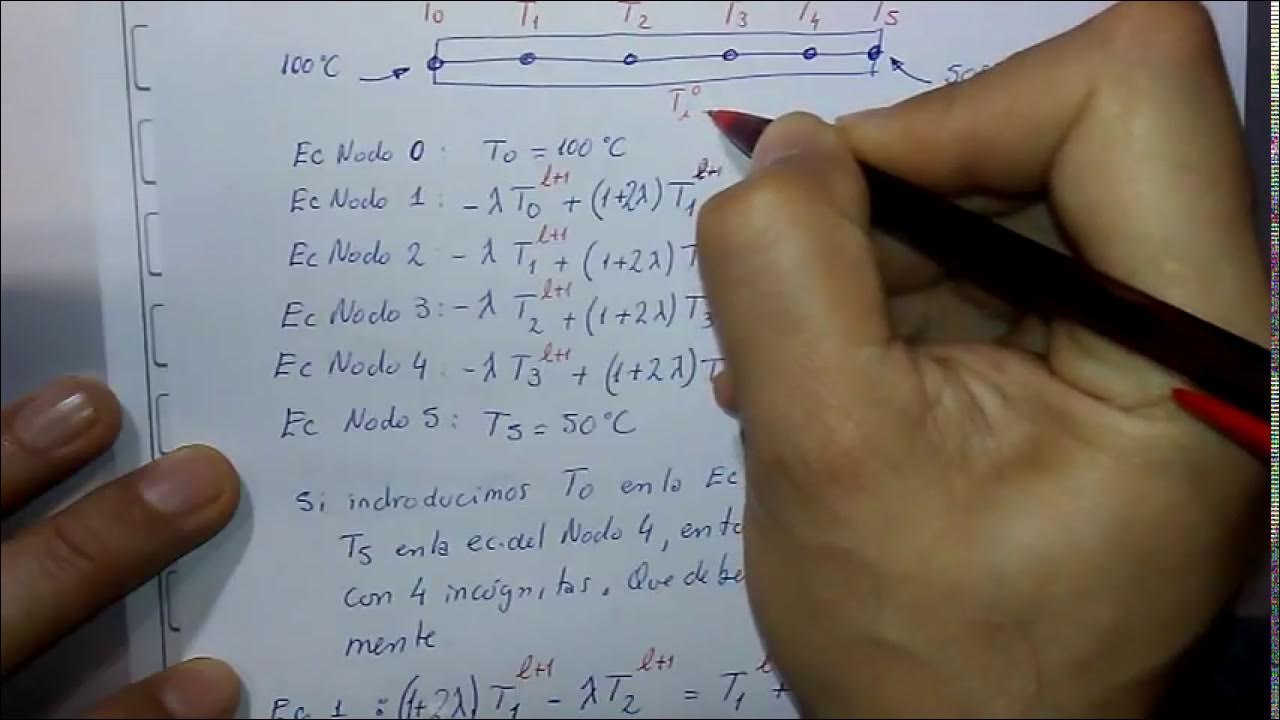 T0 T1 T2 T3 T4 T5
100°C
T_i^0
Ec Nodo 0 : T0 = 100 °C
Ec Nodo 1 : - λ T_0^{l+1} + (1+2λ) T_1^{l+1}
Ec Nodo 2 - λ T_1^{l+1} + (1+2λ) T
Ec Nodo 3 : - λ T_2^{l+1} + (1+2λ) T3
Ec Nodo 4 : - λ T_3^{l+1} + (1+2λ) T
Ec Nodo 5 : T5 = 50 °C
Si indroducimos T0 en la Ec
T5 en la ec. del Nodo 4, ento
con 4 incógnitas. Que debe
mente
Ec 1 : (1+2λ) T_1^{l+1} - λ T_2^{l+1} = T_1^l +